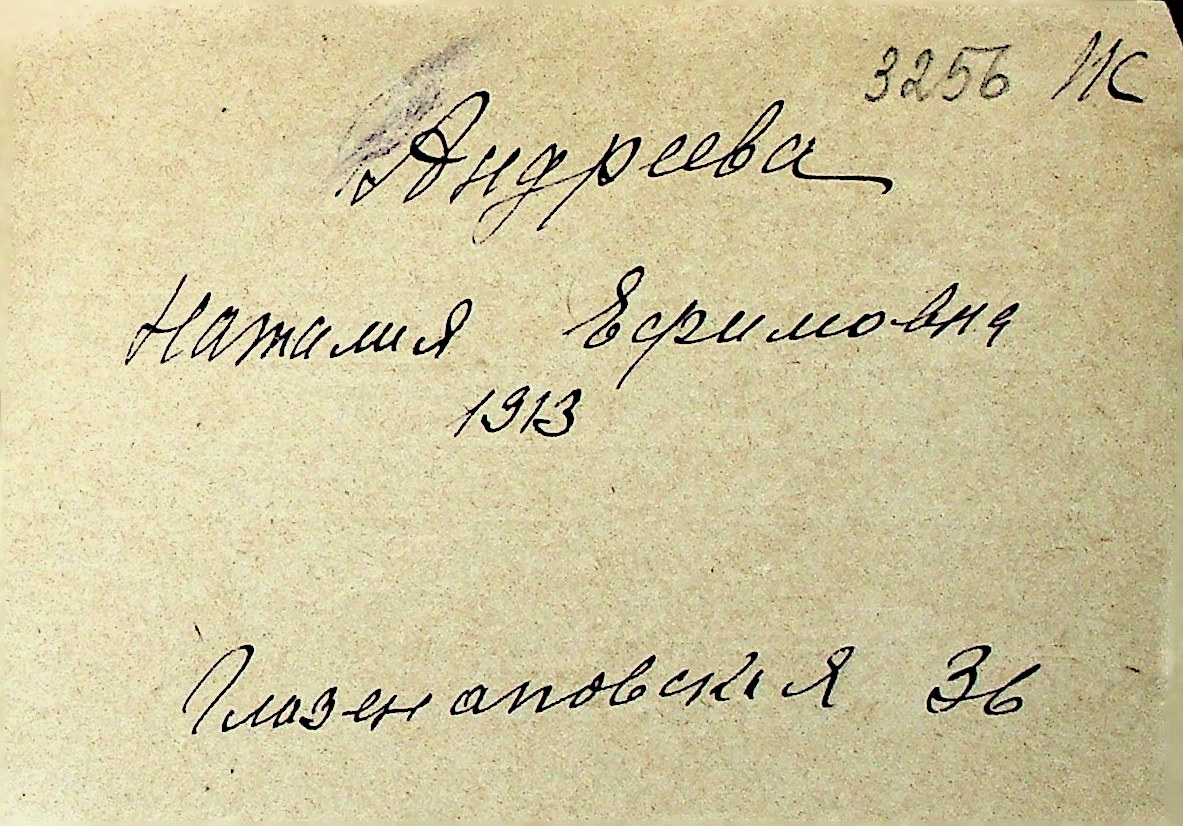 3256 Ж
Андреева
Наталия Ефимовна
1913
Глазенаповская 36